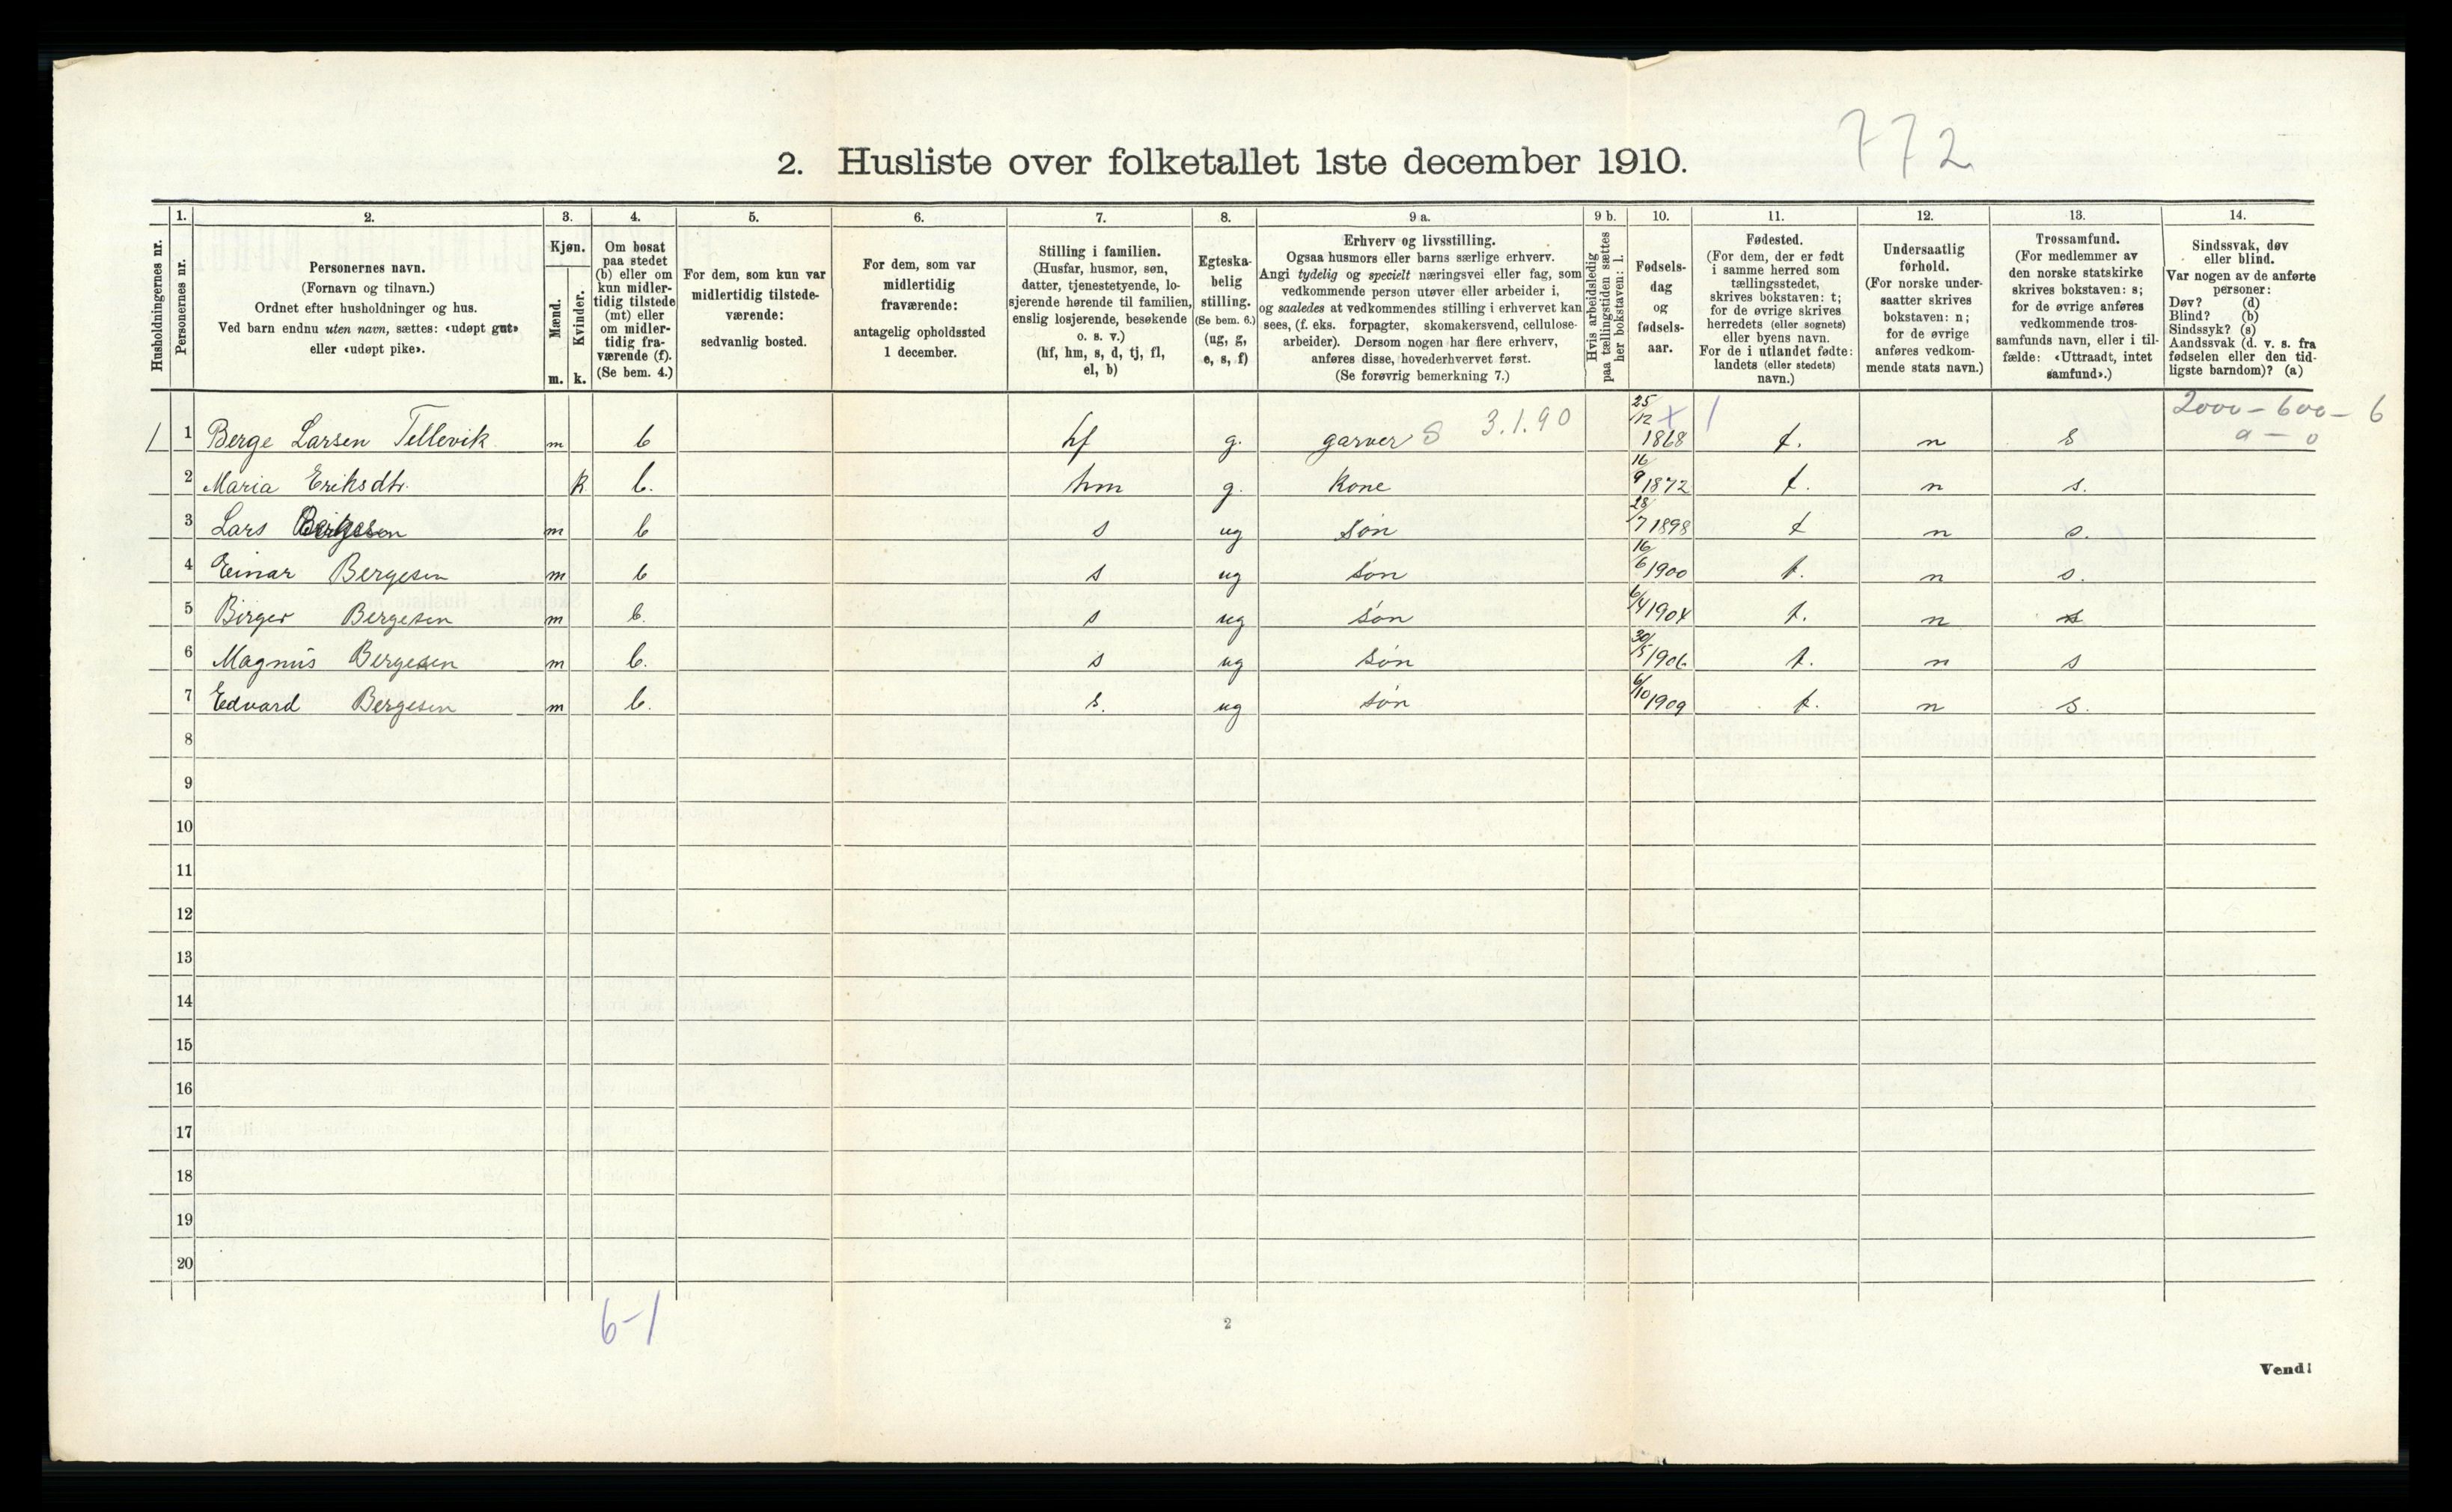 772
2. Husliste over folketallet 1ste december 1910.
Husholdningernes nr.
1. Personernes nr.
2. Personernes navn. (Fornavn og tilnavn.) Ordnet efter husholdninger og hus. Ved barn endnu uten navn, sættes: «udøpt gut» eller «udøpt pike».
3. Kjøn. Mænd. m. Kvinder. k.
4. Om bosat paa stedet (b) eller om kun midlertidig tilstede (mt) eller om midlertidig fraværende (f). (Se bem. 4.)
5. For dem, som kun var midlertidig tilstedeværende: sedvanlig bosted.
6. For dem, som var midlertidig fraværende: antagelig opholdssted 1 december.
7. Stilling i familien. (Husfar, husmor, søn, datter, tjenestetyende, losjerende hørende til familien, enslig losjerende, besøkende o. s. v.) (hf, hm, s, d, tj, fl, el, b)
8. Egteskabelig stilling. (Se bem. 6.) (ug, g, e, s, f)
9 a. Erhverv og livsstilling. Ogsaa husmors eller barns særlige erhverv. Angi tydelig og specielt næringsvei eller fag, som vedkommende person utøver eller arbeider i, og saaledes at vedkommendes stilling i erhvervet kan sees, (f. eks. forpagter, skomakersvend, cellulosearbeider). Dersom nogen har flere erhverv, anføres disse, hovederhvervet først. (Se forøvrig bemerkning 7.)
9 b. Hvis arbeidsledig paa tællingstiden sættes her bokstaven: l.
10. Fødselsdag og fødselsaar.
11. Fødested. (For dem, der er født i samme herred som tællingsstedet, skrives bokstaven: t; for de øvrige skrives herredets (eller sognets) eller byens navn. For de i utlandet fødte: landets (eller stedets) navn.)
12. Undersaatlig forhold. (For norske undersaatter skrives bokstaven: n; for de øvrige anføres vedkommende stats navn.)
13. Trossamfund. (For medlemmer av den norske statskirke skrives bokstaven: s; for de øvrige anføres vedkommende trossamfunds navn, eller i tilfælde: «Uttraadt, intet samfund».)
14. Sindssvak, døv eller blind. Var nogen av de anførte personer: Døv? (d) Blind? (b) Sindssyk? (s) Aandssvak (d. v. s. fra fødselen eller den tidligste barndom)? (a)
2000 - 600 - 6
a - 0
1 1 Berge Larsen Tellevik m b hf g. garver S 3.1.90 25/12 1868 x 1 t. n s
2 Maria Eriksdtr. k b. hm g. kone 16/9 1872 t. n s.
3 Lars Bergesen m b s ug søn 28/7 1898 t n s.
4 Einar Bergesen m b s ug søn 16/6 1900 t. n s.
5 Birger Bergesen m b. s ug søn 6/4 1904 t. n s
6 Magnus Bergesen m b. s ug søn 30/5 1906 t. n s
7 Edvard Bergesen m b. s. ug søn 6/10 1909 t. n s.
8
9
10
11
12
13
14
15
16
17
18
19
20
6-1
2
Vend!